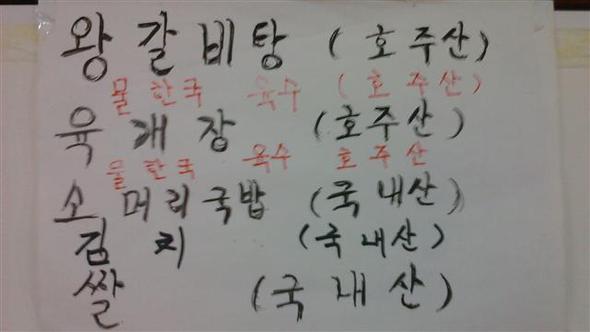 왕갈비탕 (호주산)
물 한국 육수 (호주산)
육개장 (호주산)
물 한국 육수 호주산
소머리국밥 (국내산)
김치 (국내산)
쌀 (국내산)